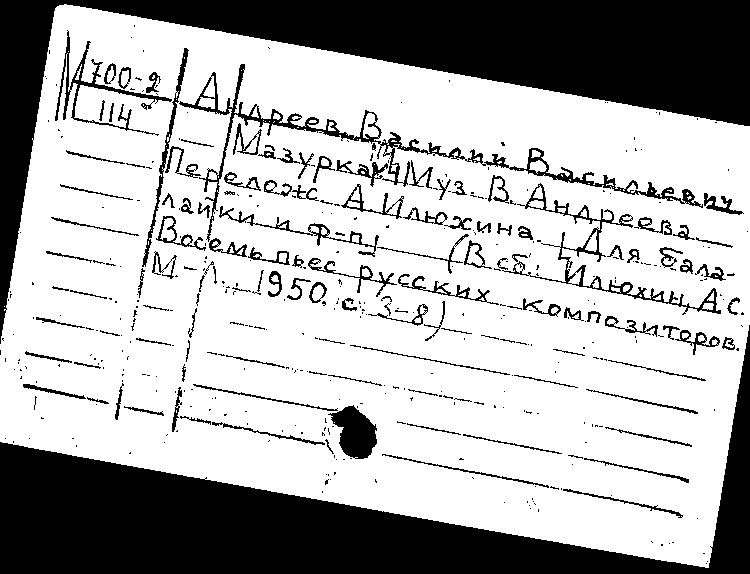 М 700-2
114
Андреев Василий Васильевич
Мазурка №4 Муз. В. Андреева
Перелож. А. Илюхина. [Для бала-
лайки и ф-п.]
(В сб.: Илюхин, А.С.
Восемь пьес русских композиторов.
М-Л., 1950. с. 3-8)